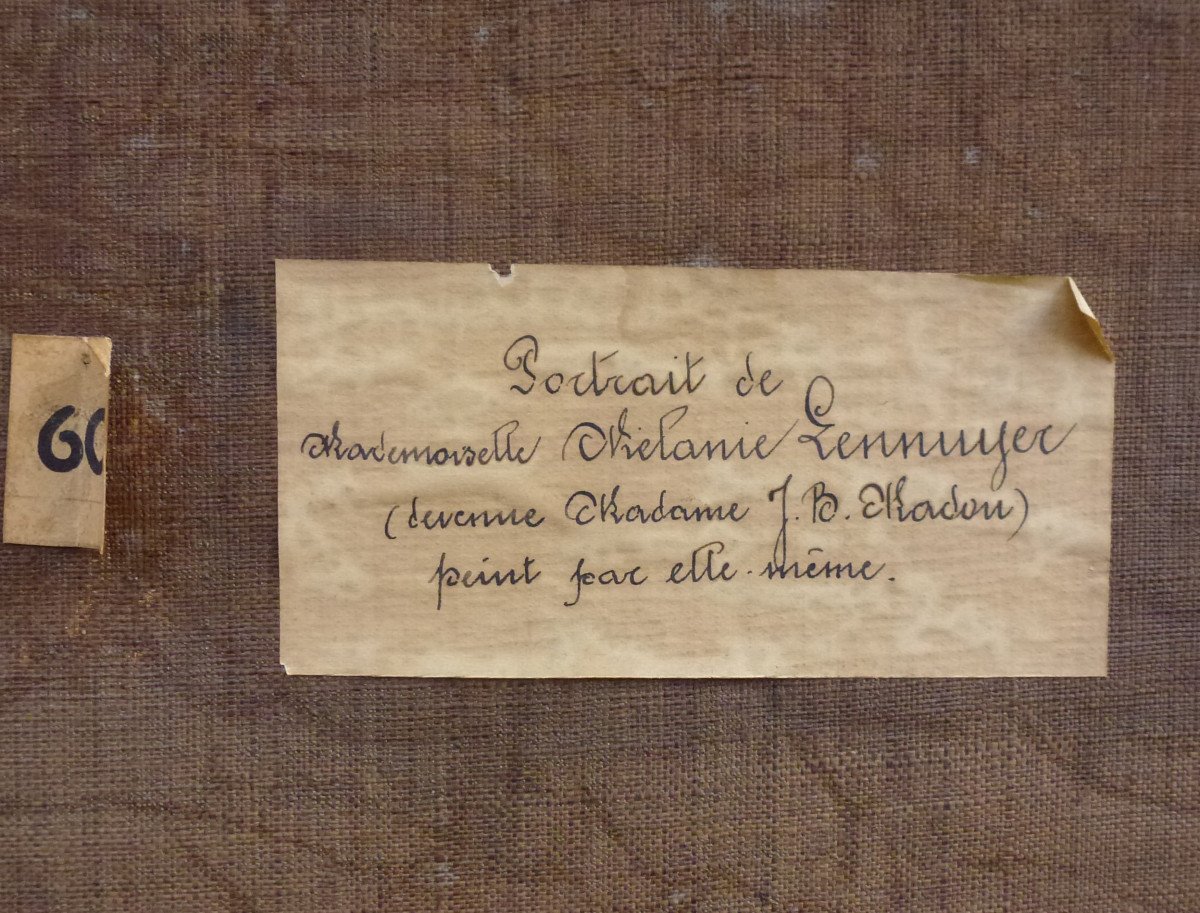 Portrait de
Mademoiselle Mélanie Lennuyer
(devenue Madame J. B. Madou)
peint par elle-même.